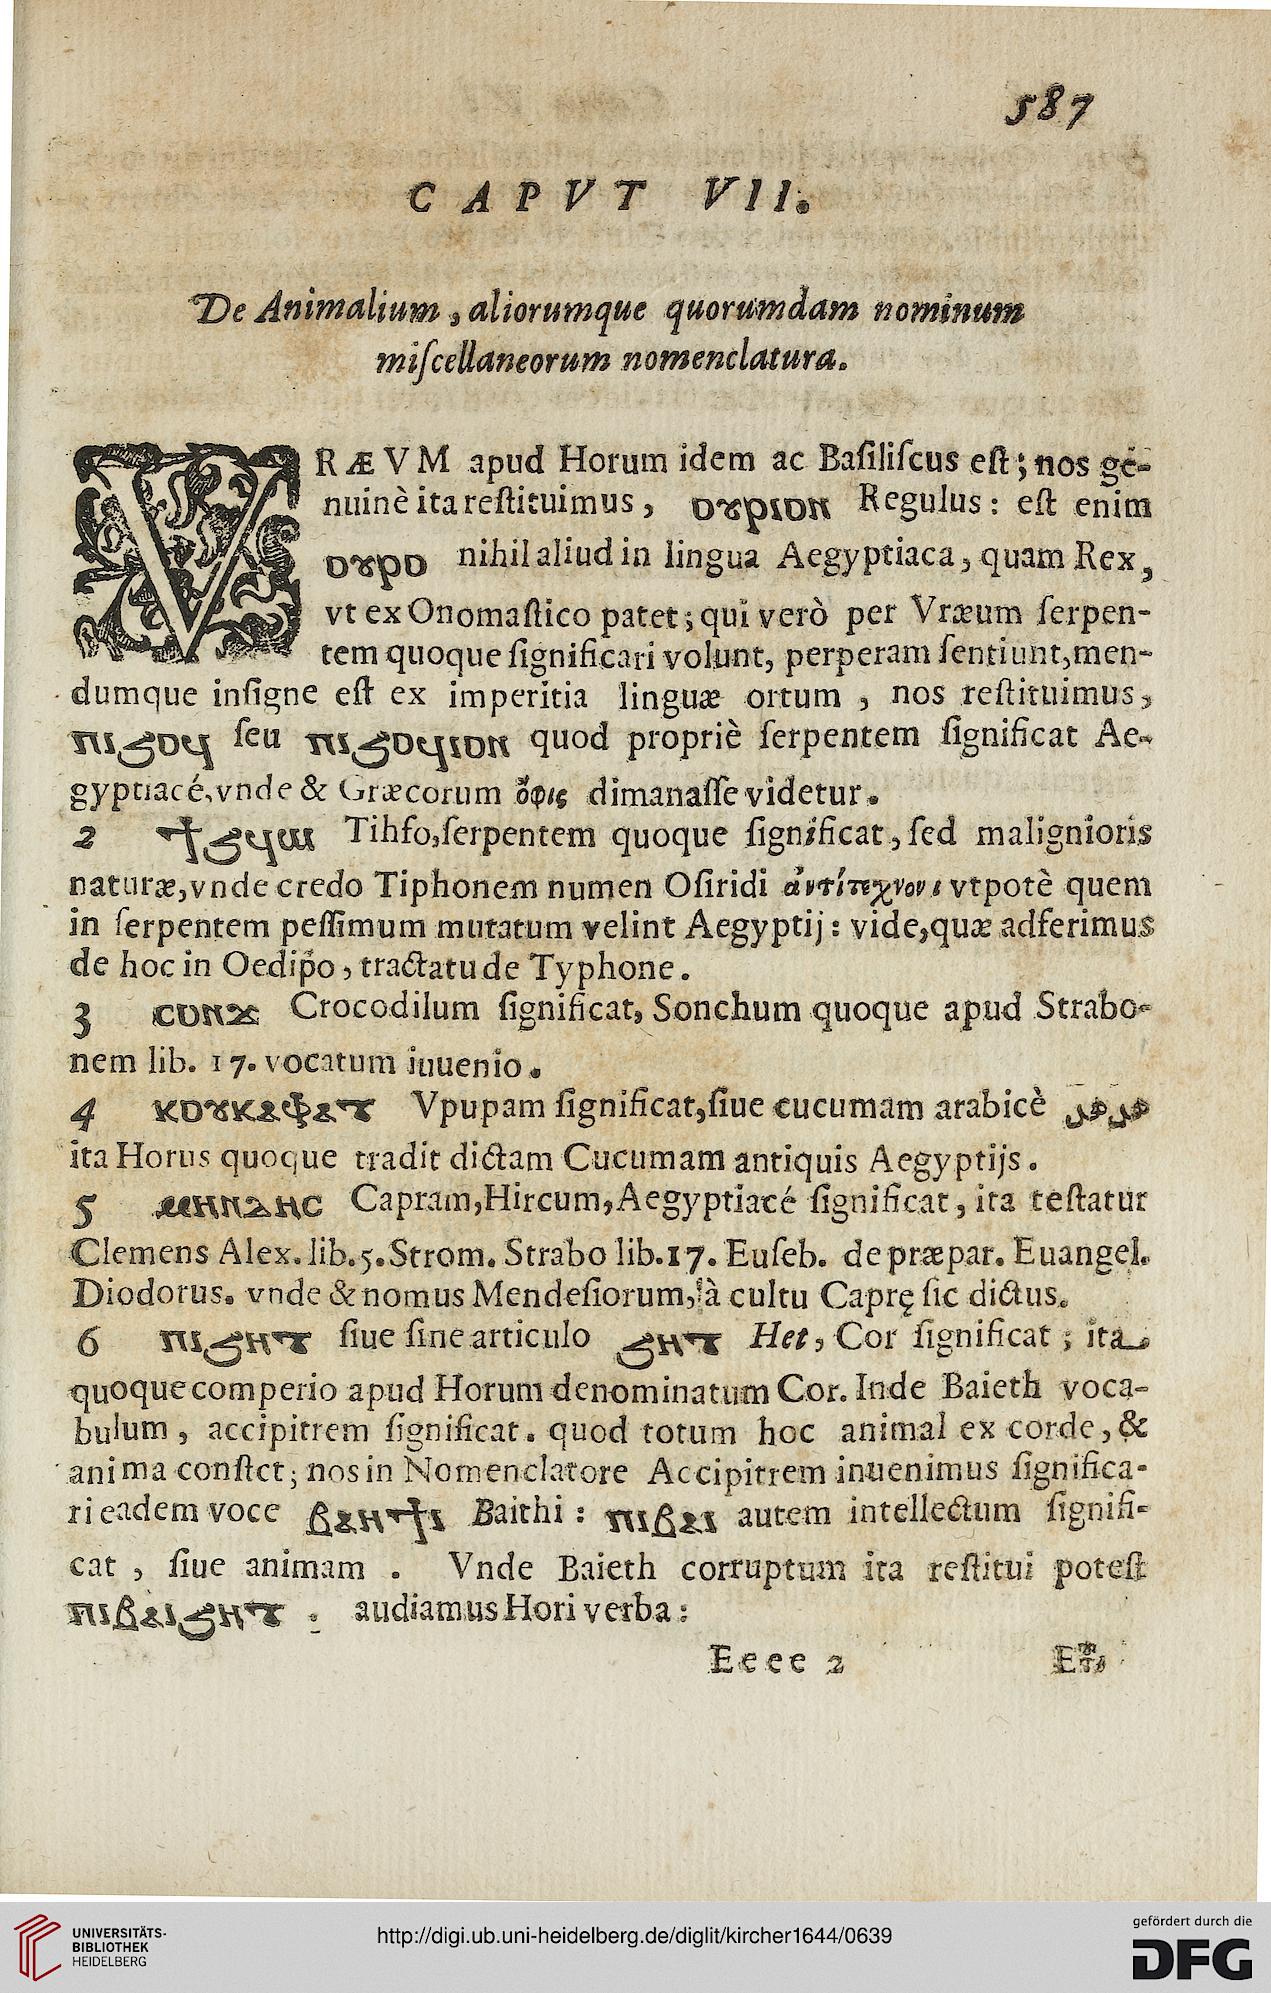 587
CAPVT VII.
De Animalium, aliorumque quorumdam nominum
miſcellaneorum nomenclatura.
VRÆVM apud Horum idem ac Baſiliſcus eſt; nos ge-
nuinè ita reſtituimus, ⲟⲩⲣⲓⲟⲛ Regulus: eſt enim
ⲟⲩⲣⲟ nihil aliud in lingua Aegyptiaca, quam Rex,
vt ex Onomaſtico patet; qui verò per Vræum ſerpen-
tem quoque ſignificari volunt, perperam ſentiunt, men-
dumque inſigne eſt ex imperitia linguæ ortum, nos reſtituimus,
ⲡⲓϩⲟϥ ſeu ⲡⲓϩⲟϥⲓⲟⲛ quod propriè ſerpentem ſignificat Ae-
gyptiacé, vnde & Græcorum ὄφις dimanaſſe videtur.
2 ϯϩϥⲱ Tihfo, ſerpentem quoque ſignificat, ſed malignioris
naturæ, vnde credo Tiphonem numen Oſiridi ἀντίτεχνον; vtpotè quem
in ſerpentem peſſimum mutatum velint Aegyptij: vide, quæ adferimus
de hoc in Oedipo, tractatu de Typhone.
3 ⲥⲟⲛⲭ Crocodilum ſignificat, Sonchum quoque apud Strabo-
nem lib. 17. vocatum inuenio.
4 ⲕⲟⲩⲕⲁⲫⲁⲧ Vpupam ſignificat, ſiue cucumam arabicè هدهد
ita Horus quoque tradit dictam Cucumam antiquis Aegyptijs.
5 ⲙⲏⲛⲇⲏⲥ Capram, Hircum, Aegyptiacé ſignificat, ita teſtatur
Clemens Alex. lib. 5. Strom. Strabo lib. 17. Euſeb. de præpar. Euangel.
Diodorus. vnde & nomus Mendeſiorum, à cultu Caprę ſic dictus.
6 ⲡⲓϩⲏⲧ ſiue ſine articulo ϩⲏⲧ Het, Cor ſignificat; ita
quoque comperio apud Horum denominatum Cor. Inde Baieth voca-
bulum, accipitrem ſignificat. quod totum hoc animal ex corde, &
anima conſtet; nos in Nomenclatore Accipitrem inuenimus ſignifica-
ri eadem voce ⲃⲁⲏϯⲓ Baithi: ⲡⲓⲃⲁⲓ autem intellectum ſignifi-
cat, ſiue animam. Vnde Baieth corruptum ita reſtitui poteſt
ⲡⲓⲃⲁⲓϩⲏⲧ : audiamus Hori verba:
Eeee 2
UNIVERSITÄTS-
BIBLIOTHEK
HEIDELBERG
http://digi.ub.uni-heidelberg.de/diglit/kircher1644/0639
gefördert durch die
DFG